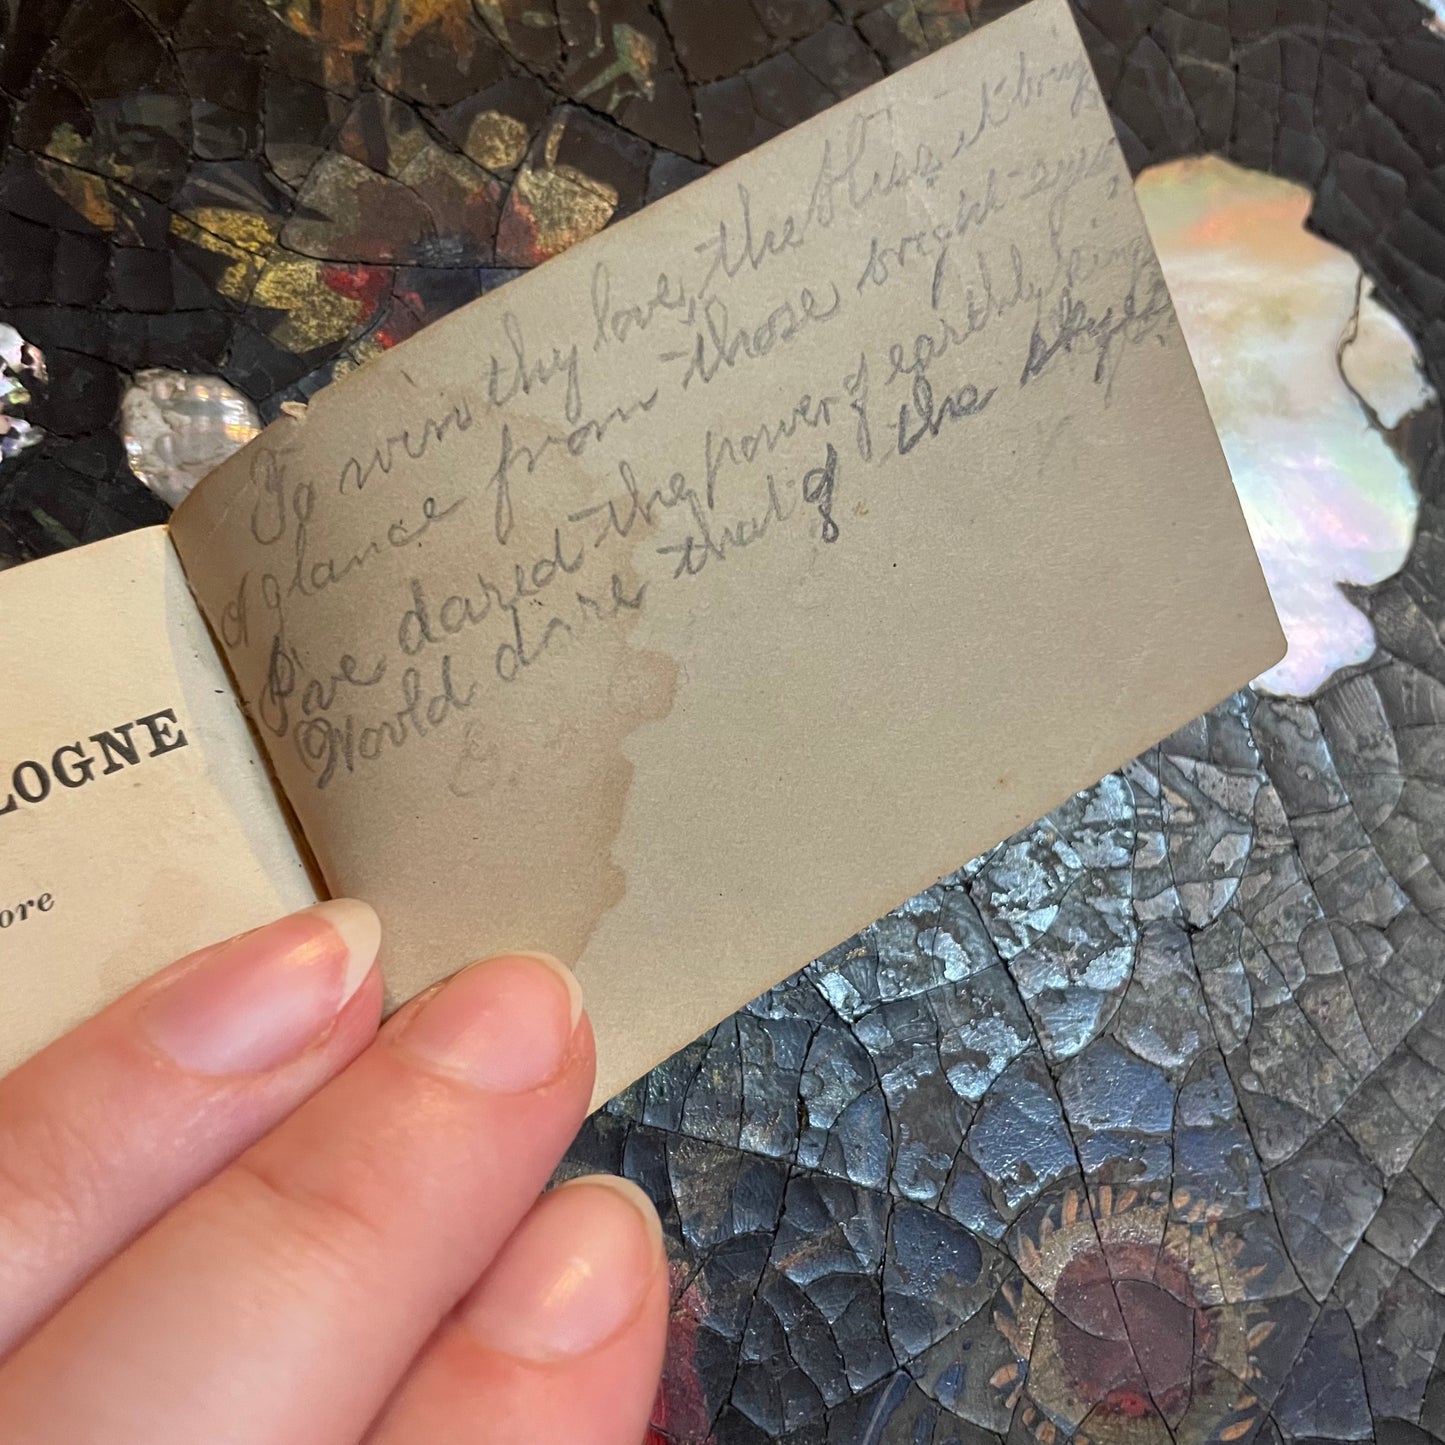 To win thy love, the bliss it brings
A glance from those bright eyes
I've dared the power of earthly kings
Would dare that of the skyes.
LOGNE
ore